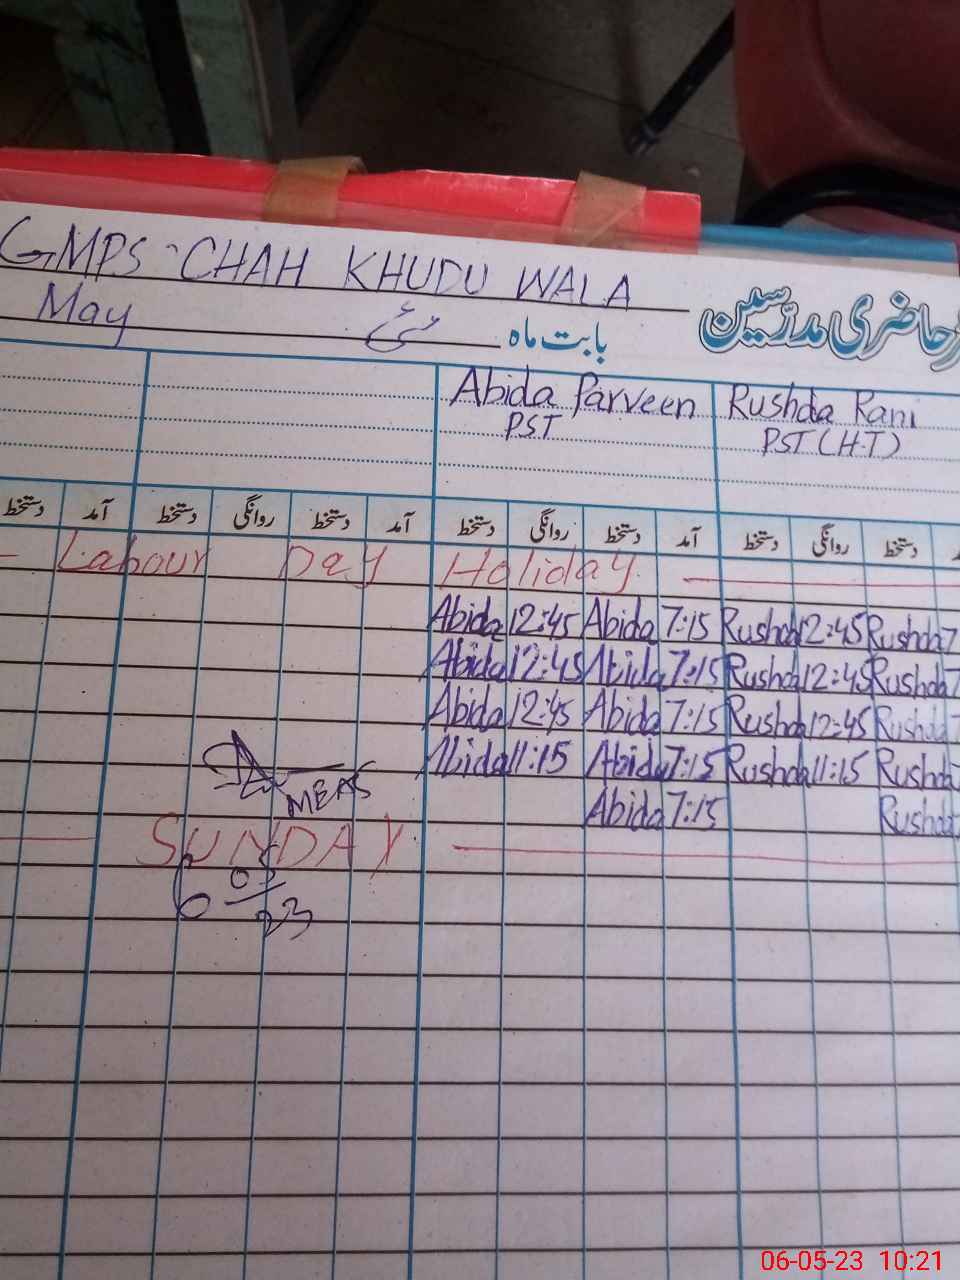 GMPS CHAH KHUDU WALA
حاضری مدرسین
May مئی بابت ماہ
Abida Parveen Rushda Rani
PST PST (H.T)
دستخط آمد دستخط روانگی دستخط آمد دستخط روانگی دستخط آمد دستخط روانگی دستخط
Labour Day Holiday
Abida 12:45 Abida 7:15 Rushda 12:45 Rushda 7
Abida 12:45 Abida 7:15 Rushda 12:45 Rushda 7
Abida 12:45 Abida 7:15 Rushda 12:45 Rushda 7
Abida 11:15 Abida 7:15 Rushda 11:15 Rushda 7
MEAS
Abida 7:15 Rushda 7
SUNDAY
6 05 23
06-05-23 10:21